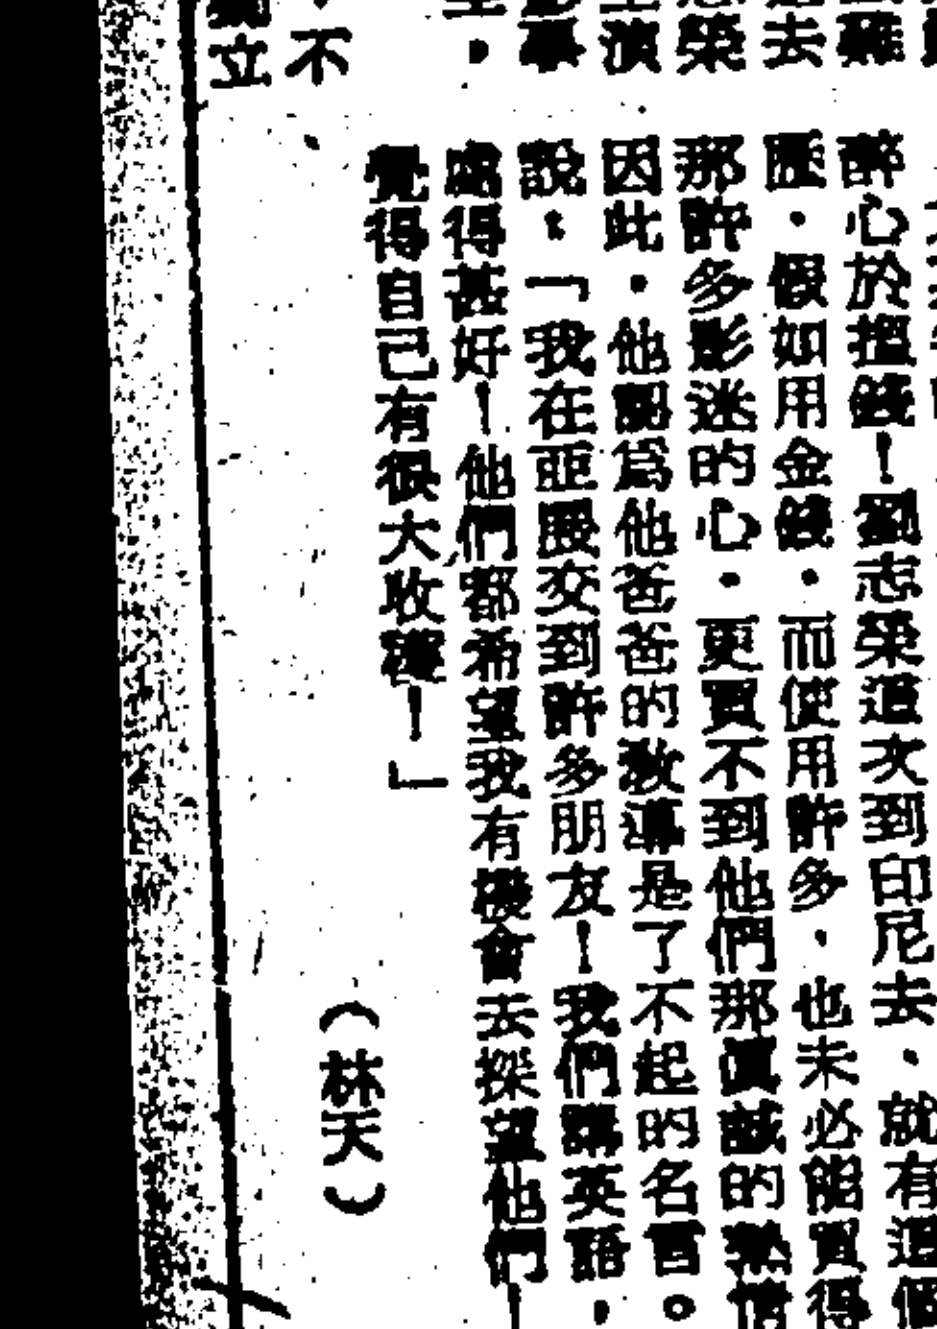 難
去
榮
演
學
，
不
立
醉心於搵錢！劉志榮這次到印尼去，就有這個
歷，假如用金錢，而使用許多，也未必能買得
那許多影迷的心，更買不到他們那眞誠的熱情
因此，他認爲他爸爸的教導是了不起的名言。
說：「我在亞股交到許多朋友！我們講英語，
處得甚好！他們都希望我有機會去探望他們！
覺得自己有很大收穫！」
（林天）